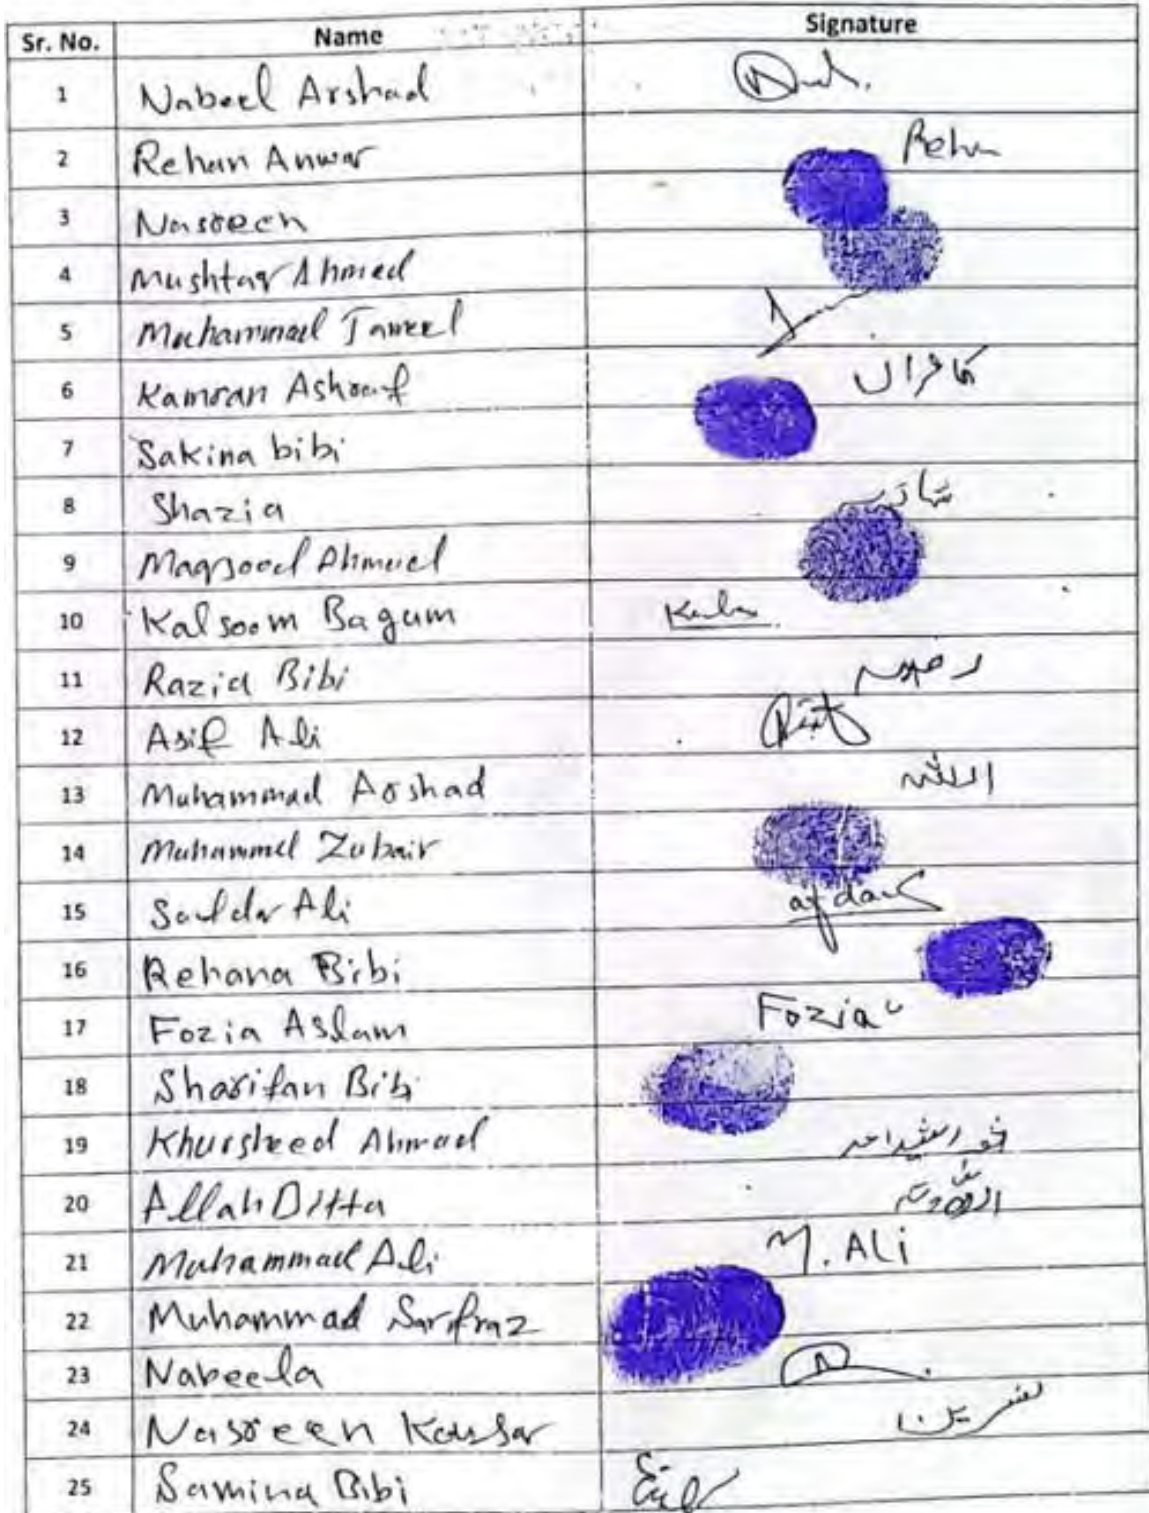 Sr. No. Name Signature
1 Nabeel Arshad
2 Rehan Anwar Reha
3 Nasreen
4 Mushtaq Ahmed
5 Muhammad Jameel
6 Kamran Ashraf کامران
7 Sakina bibi
8 Shazia شازیہ
9 Maqsood Ahmed
10 Kalsoom Bagum
11 Razia Bibi رضیہ
12 Asif Ali
13 Muhammad Arshad ارشد
14 Muhammad Zubair
15 Safdar Ali
16 Rehana Bibi
17 Fozia Aslam Fozia
18 Sharifan Bibi
19 Khursheed Ahmad خورشید احمد
20 Allah Ditta اللہ دتہ
21 Muhammad Ali M. ALi
22 Muhammad Sarfraz
23 Nabeela
24 Nasreen Kousar نسرین
25 Samina Bibi